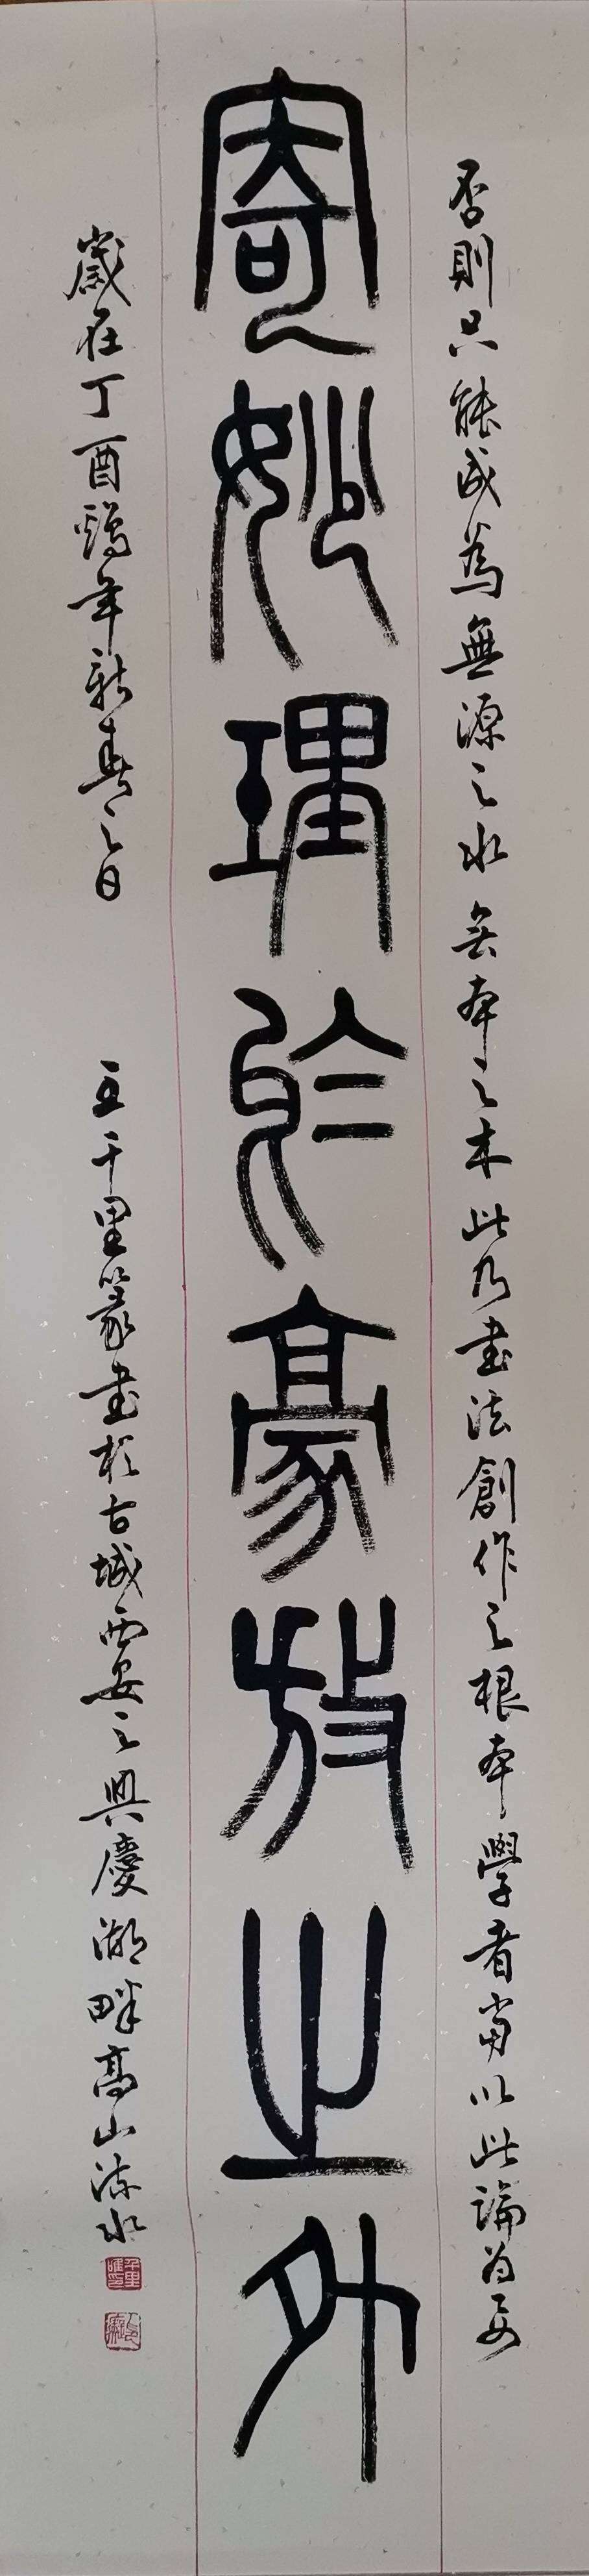 否則只能成為無源之水無本之木此乃書法創作之根本學者當以此論為要
寄妙理於豪放之外
歲在丁酉鷄年新春之日 王千里篆書於古城西安之興慶湖畔高山流水
千里